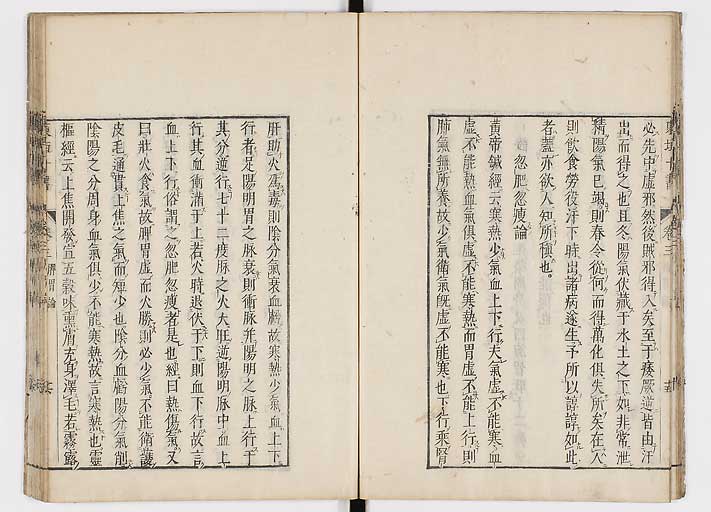 必先中虛邪然後賊邪得入矣至于痿厥逆皆由汗
出而得之也且冬陽氣伏藏于水土之下如非常泄
精陽氣已竭則春令從何而得萬化俱失所矣在人
則飲食勞役汗下時出諸病遂生予所以諄諄如此
者蓋亦欲人知所愼也
忽肥忽瘦論
黃帝鍼經云寒熱少氣血上下行夫氣虛不能寒血
虛不能熱血氣俱虛不能寒熱而胃虛不能上行則
肺氣無所養故少氣衛氣旣虛不能寒也下行乘腎
肝助火爲毒則陰分氣衰血虧故寒熱少氣血上下
行者足陽明胃之脉衰則衝脉幷陽明之脉上行于
其分逆行七十二度脉之火大旺逆陽明脉中血上
行其血衝滿于上若火時退伏于下則血下行故言
血上下行俗謂之忽肥忽瘦者是也經曰熱傷氣又
曰壯火食氣故脾胃虛而火勝則必少氣不能衛護
皮毛通貫上焦之氣而短少也陰分血虧陽分氣削
陰陽之分周身血氣俱少不能寒熱故言寒熱也靈
樞經云上焦開發宣五穀味熏膚充身澤毛若霧露